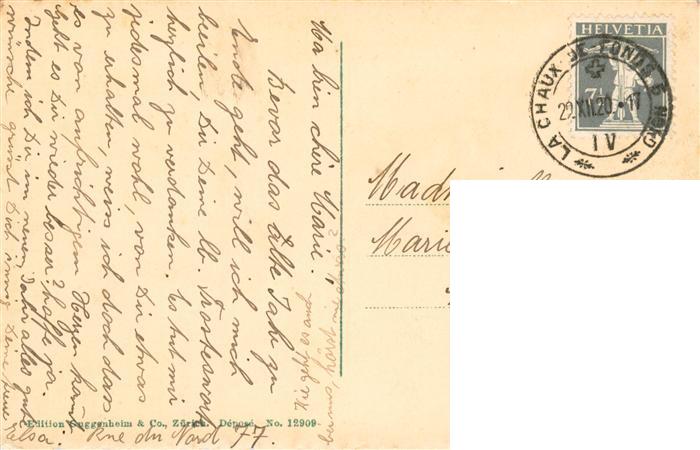 Ma bien chère Marie!
Bevor das alte Jahr zu
Ende geht, will ich mich
beeilen, Dir Deine lb. Trostesworte
herzlich zu verdanken. Es tut mir
jedesmal wohl, von Dir etwas
zu erhalten, weiss ich doch dass
es von aufrichtigem Herzen kommt
Geht es Dir wieder besser? hoffe ja.
Indem ich Dir im neuen Jahr alles gute
wünsche grüsst Dich innig Deine treue
Elsa. Rue du Nord 77.
Wie geht es
hörst
Edition Guggenheim & Co., Zürich. Déposé. No. 12909
HELVETIA
7½
LA CHAUX-DE-FONDS 5 NORD
22.XII.20.-17
IV
Mad
Marie